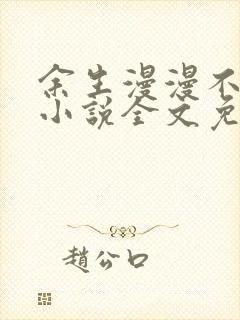 余生漫漫不
小说全文免
趙公口